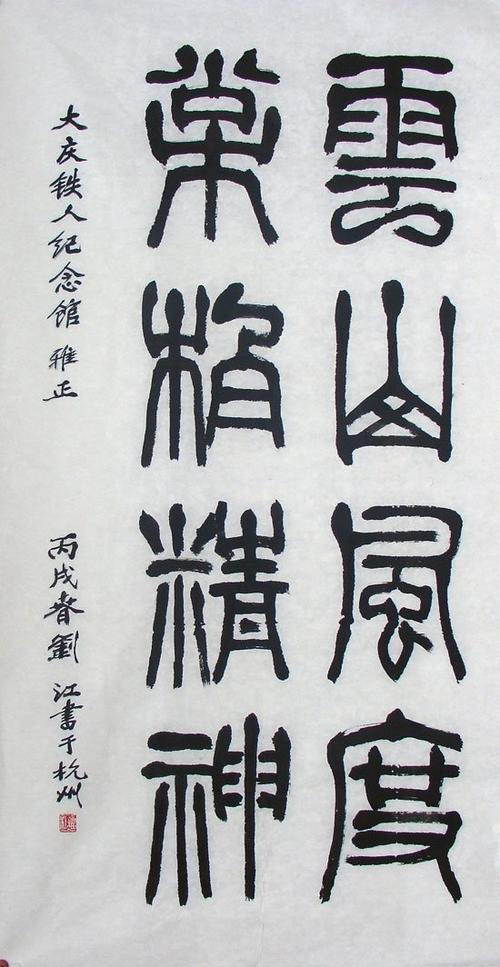 雲山風度
松柏精神
大庆铁人纪念馆 雅正
丙戌春劉江書于杭州